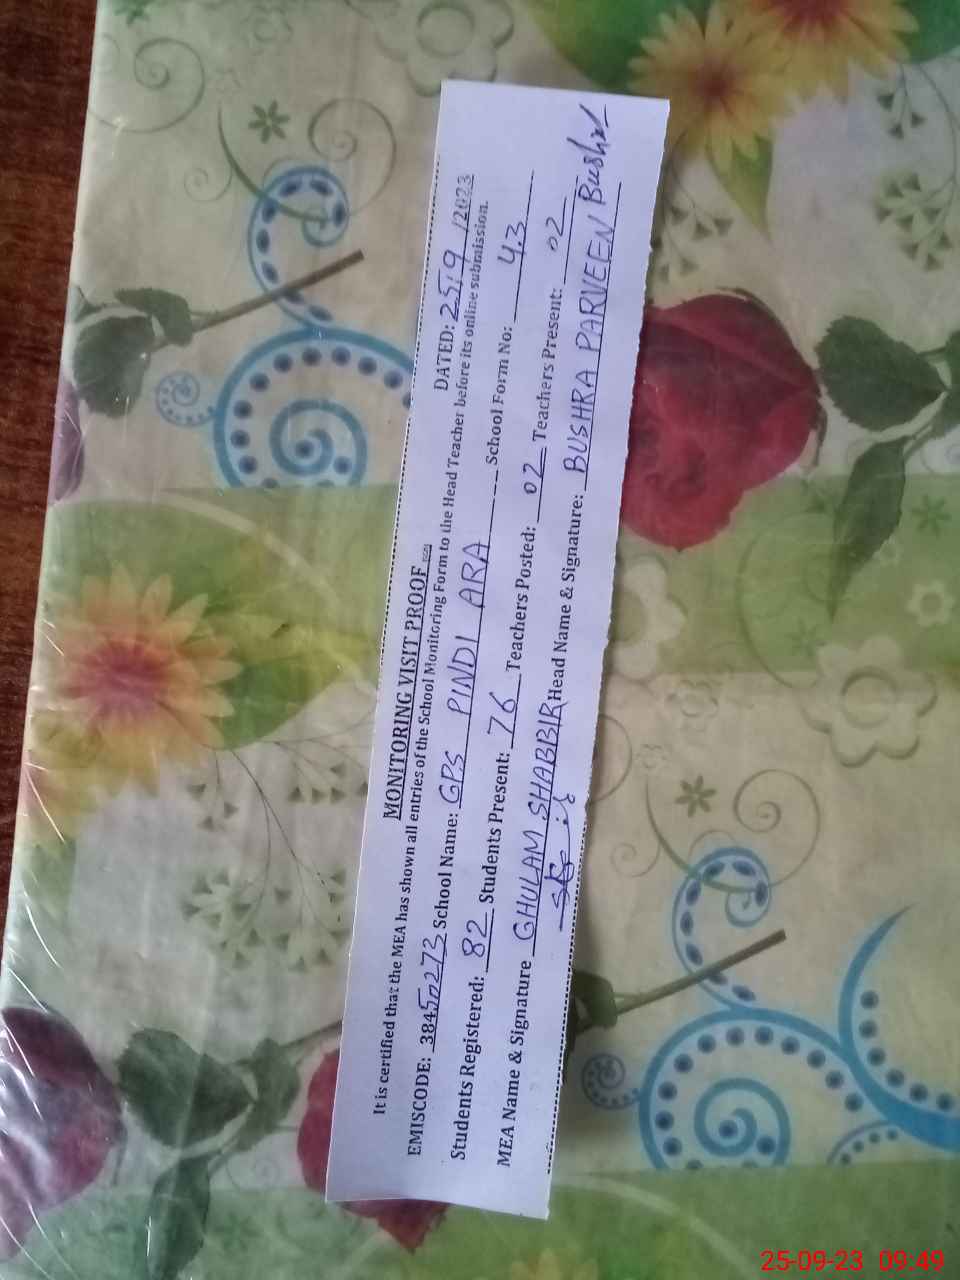 MONITORING VISIT PROOF
DATED: 25/9/2023
It is certified that the MEA has shown all entries of the School Monitoring Form to the Head Teacher before its online submission.
EMISCODE: 38450273 School Name: GPS PINDI ARA School Form No: 43
Students Registered: 82 Students Present: 76 Teachers Posted: 02 Teachers Present: 02
MEA Name & Signature GHULAM SHABBIR Head Name & Signature: BUSHRA PARVEEN Bushra
25-09-23 09:49